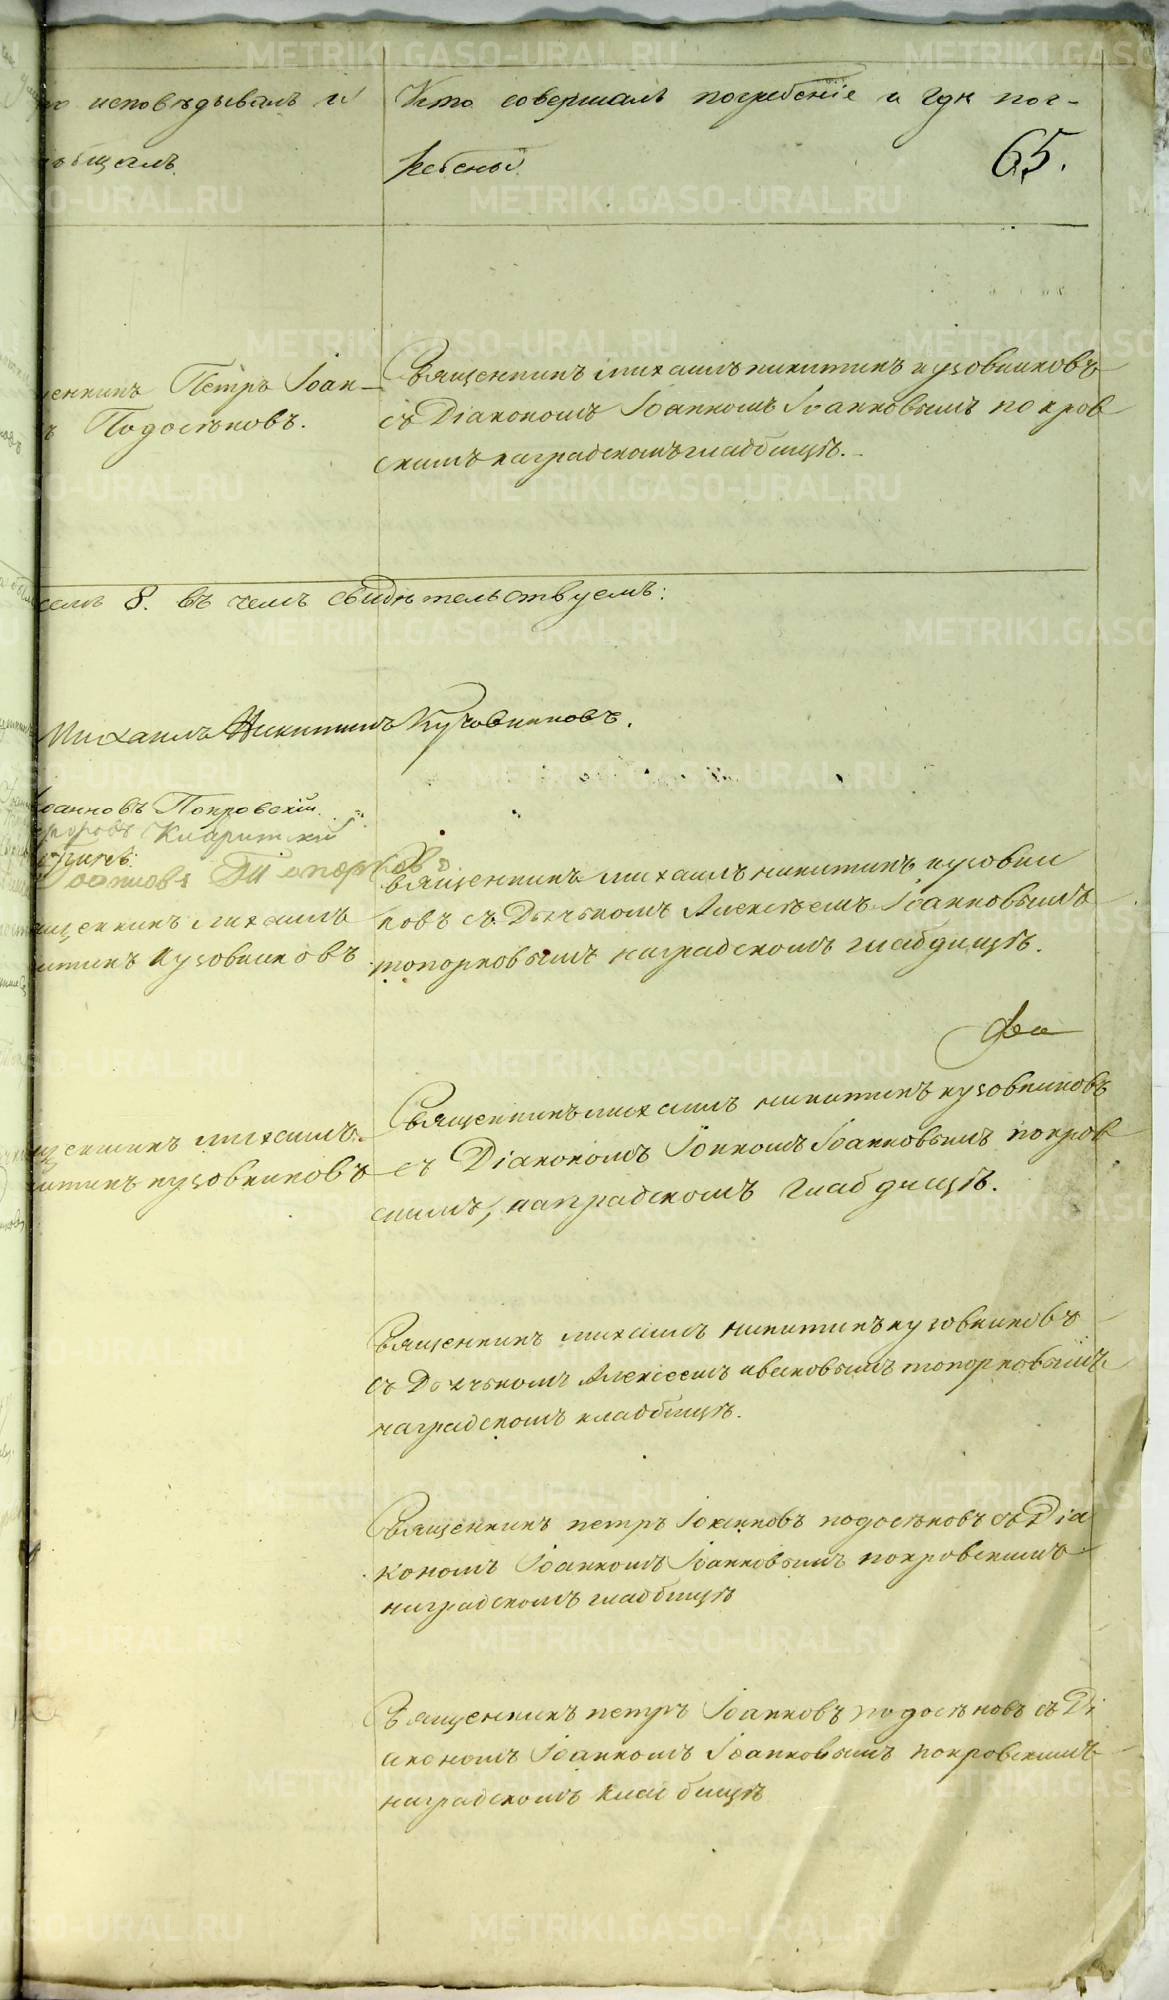 исповѣдывалъ и
общалъ.
Кто совершалъ погребеніе и гдѣ пог-
ребены
65.
Петръ Іоан-
Подосѣновъ.
Священникъ Михаилъ Никитинъ Кузовниковъ
съ Діакономъ Іоанномъ Іоанновымъ Покров
скимъ наградскомъ гладбищѣ.
8. въ чемъ свидѣтельствуемъ:
Михаилъ Никитинъ Кузовниковъ.
Іоанновъ Покровскій
Іоанновъ Топорковъ
Священникъ Михаилъ Никитинъ Кузовни
ковъ съ Дьячькомъ Алексѣемъ Іоанновымъ
топорковымъ наградскомъ гладбищѣ.
Михаилъ
Кузовниковъ
Священникъ михаилъ никитинъ кузовниковъ
съ Діакономъ Іонномъ Іоанновымъ покров
скимъ, наградскомъ гладбищѣ.
михаилъ
кузовниковъ
Священникъ михаилъ никитинъ кузовниковъ
съ Дьячькомъ Алексеемъ ивановымъ топорковымъ
наградскомъ кладбищѣ.
Священникъ петръ Іоанновъ подосѣновъ съ Діа
кономъ Іоанномъ Іоанновымъ покровскимъ
наградскомъ гладбищѣ
Священникъ петръ Іоанновъ подосѣновъ съ Ді
акономъ Іоанномъ Іоанновымъ покровскимъ
наградскомъ кладбищѣ
METRIKI.GASO-URAL.RU